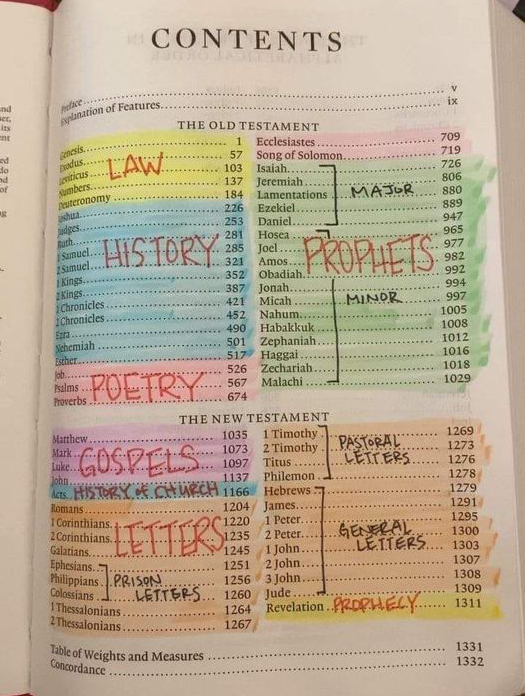 CONTENTS
Preface v
Explanation of Features ix
THE OLD TESTAMENT
Genesis 1
Exodus 57
Leviticus 103
Numbers 137
Deuteronomy 184
LAW
Joshua 226
Judges 253
Ruth 281
1 Samuel 285
2 Samuel 321
1 Kings 352
2 Kings 387
1 Chronicles 421
2 Chronicles 452
Ezra 490
Nehemiah 501
Esther 517
HISTORY
Job 526
Psalms 567
Proverbs 674
POETRY
Ecclesiastes 709
Song of Solomon 719
Isaiah 726
Jeremiah 806
Lamentations 880
Ezekiel 889
Daniel 947
MAJOR
Hosea 965
Joel 977
Amos 982
Obadiah 992
PROPHETS
Jonah 994
Micah 997
Nahum 1005
Habakkuk 1008
Zephaniah 1012
Haggai 1016
Zechariah 1018
Malachi 1029
MINOR
THE NEW TESTAMENT
Matthew 1035
Mark 1073
Luke 1097
John 1137
GOSPELS
Acts HISTORY OF CHURCH 1166
Romans 1204
1 Corinthians 1220
2 Corinthians 1235
Galatians 1245
LETTERS
Ephesians 1251
Philippians 1256
Colossians 1260
PRISON
LETTERS
1 Thessalonians 1264
2 Thessalonians 1267
1 Timothy 1269
2 Timothy 1273
Titus 1276
Philemon 1278
PASTORAL
LETTERS
Hebrews 1279
James 1291
1 Peter 1295
2 Peter 1300
1 John 1303
2 John 1307
3 John 1308
Jude 1309
GENERAL
LETTERS
Revelation PROPHECY 1311
Table of Weights and Measures 1331
Concordance 1332